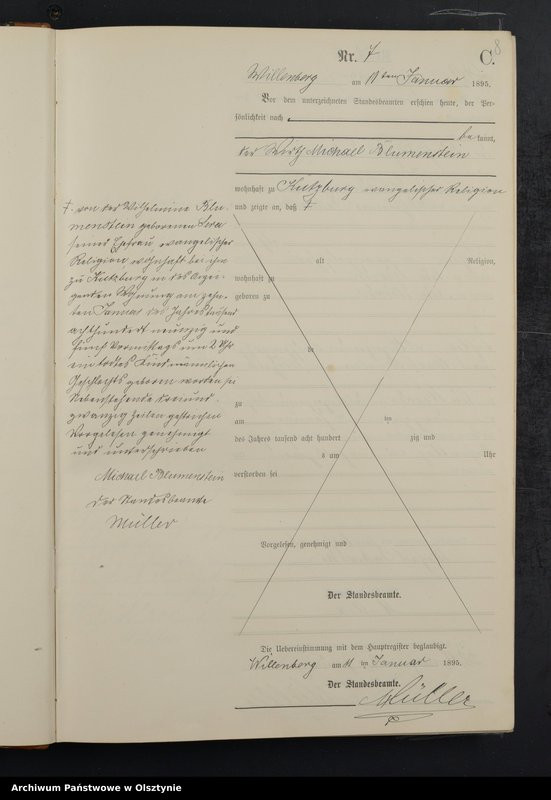 8
Nr. 7
C.
Willenberg am 11ten Januar 1895.
Vor dem unterzeichneten Standesbeamten erschien heute, der Per-
sönlichkeit nach
be kannt,
der Wirth Michael Blumenstein
wohnhaft zu Kutzburg evangelischer Religion
und zeigte an, daß
von der Wilhelmine Blu-
menstein geborenen
seiner Ehefrau evangelischer
Religion wohnhaft bei ihm
zu Kutzburg in des Anzei-
genden Wohnung am zehn-
ten Januar des Jahres tausend
achthundert neunzig und
fünf Vormittags um 2 Uhr
ein todtes Kind männlichen
Geschlechts geboren worden sei
Nebenstehende dreiund-
zwanzig Zeilen gestrichen
Vorgelesen genehmigt
und unterschrieben
Michael Blumenstein
Der Standesbeamte
Müller
alt Religion,
wohnhaft zu
geboren zu
zu
am ten
des Jahres tausend acht hundert zig und
s um Uhr
verstorben sei
Vorgelesen, genehmigt und
Der Standesbeamte.
Die Uebereinstimmung mit dem Hauptregister beglaubigt.
Willenberg am 11 ten Januar 1895.
Der Standesbeamte.
Müller
Archiwum Państwowe w Olsztynie